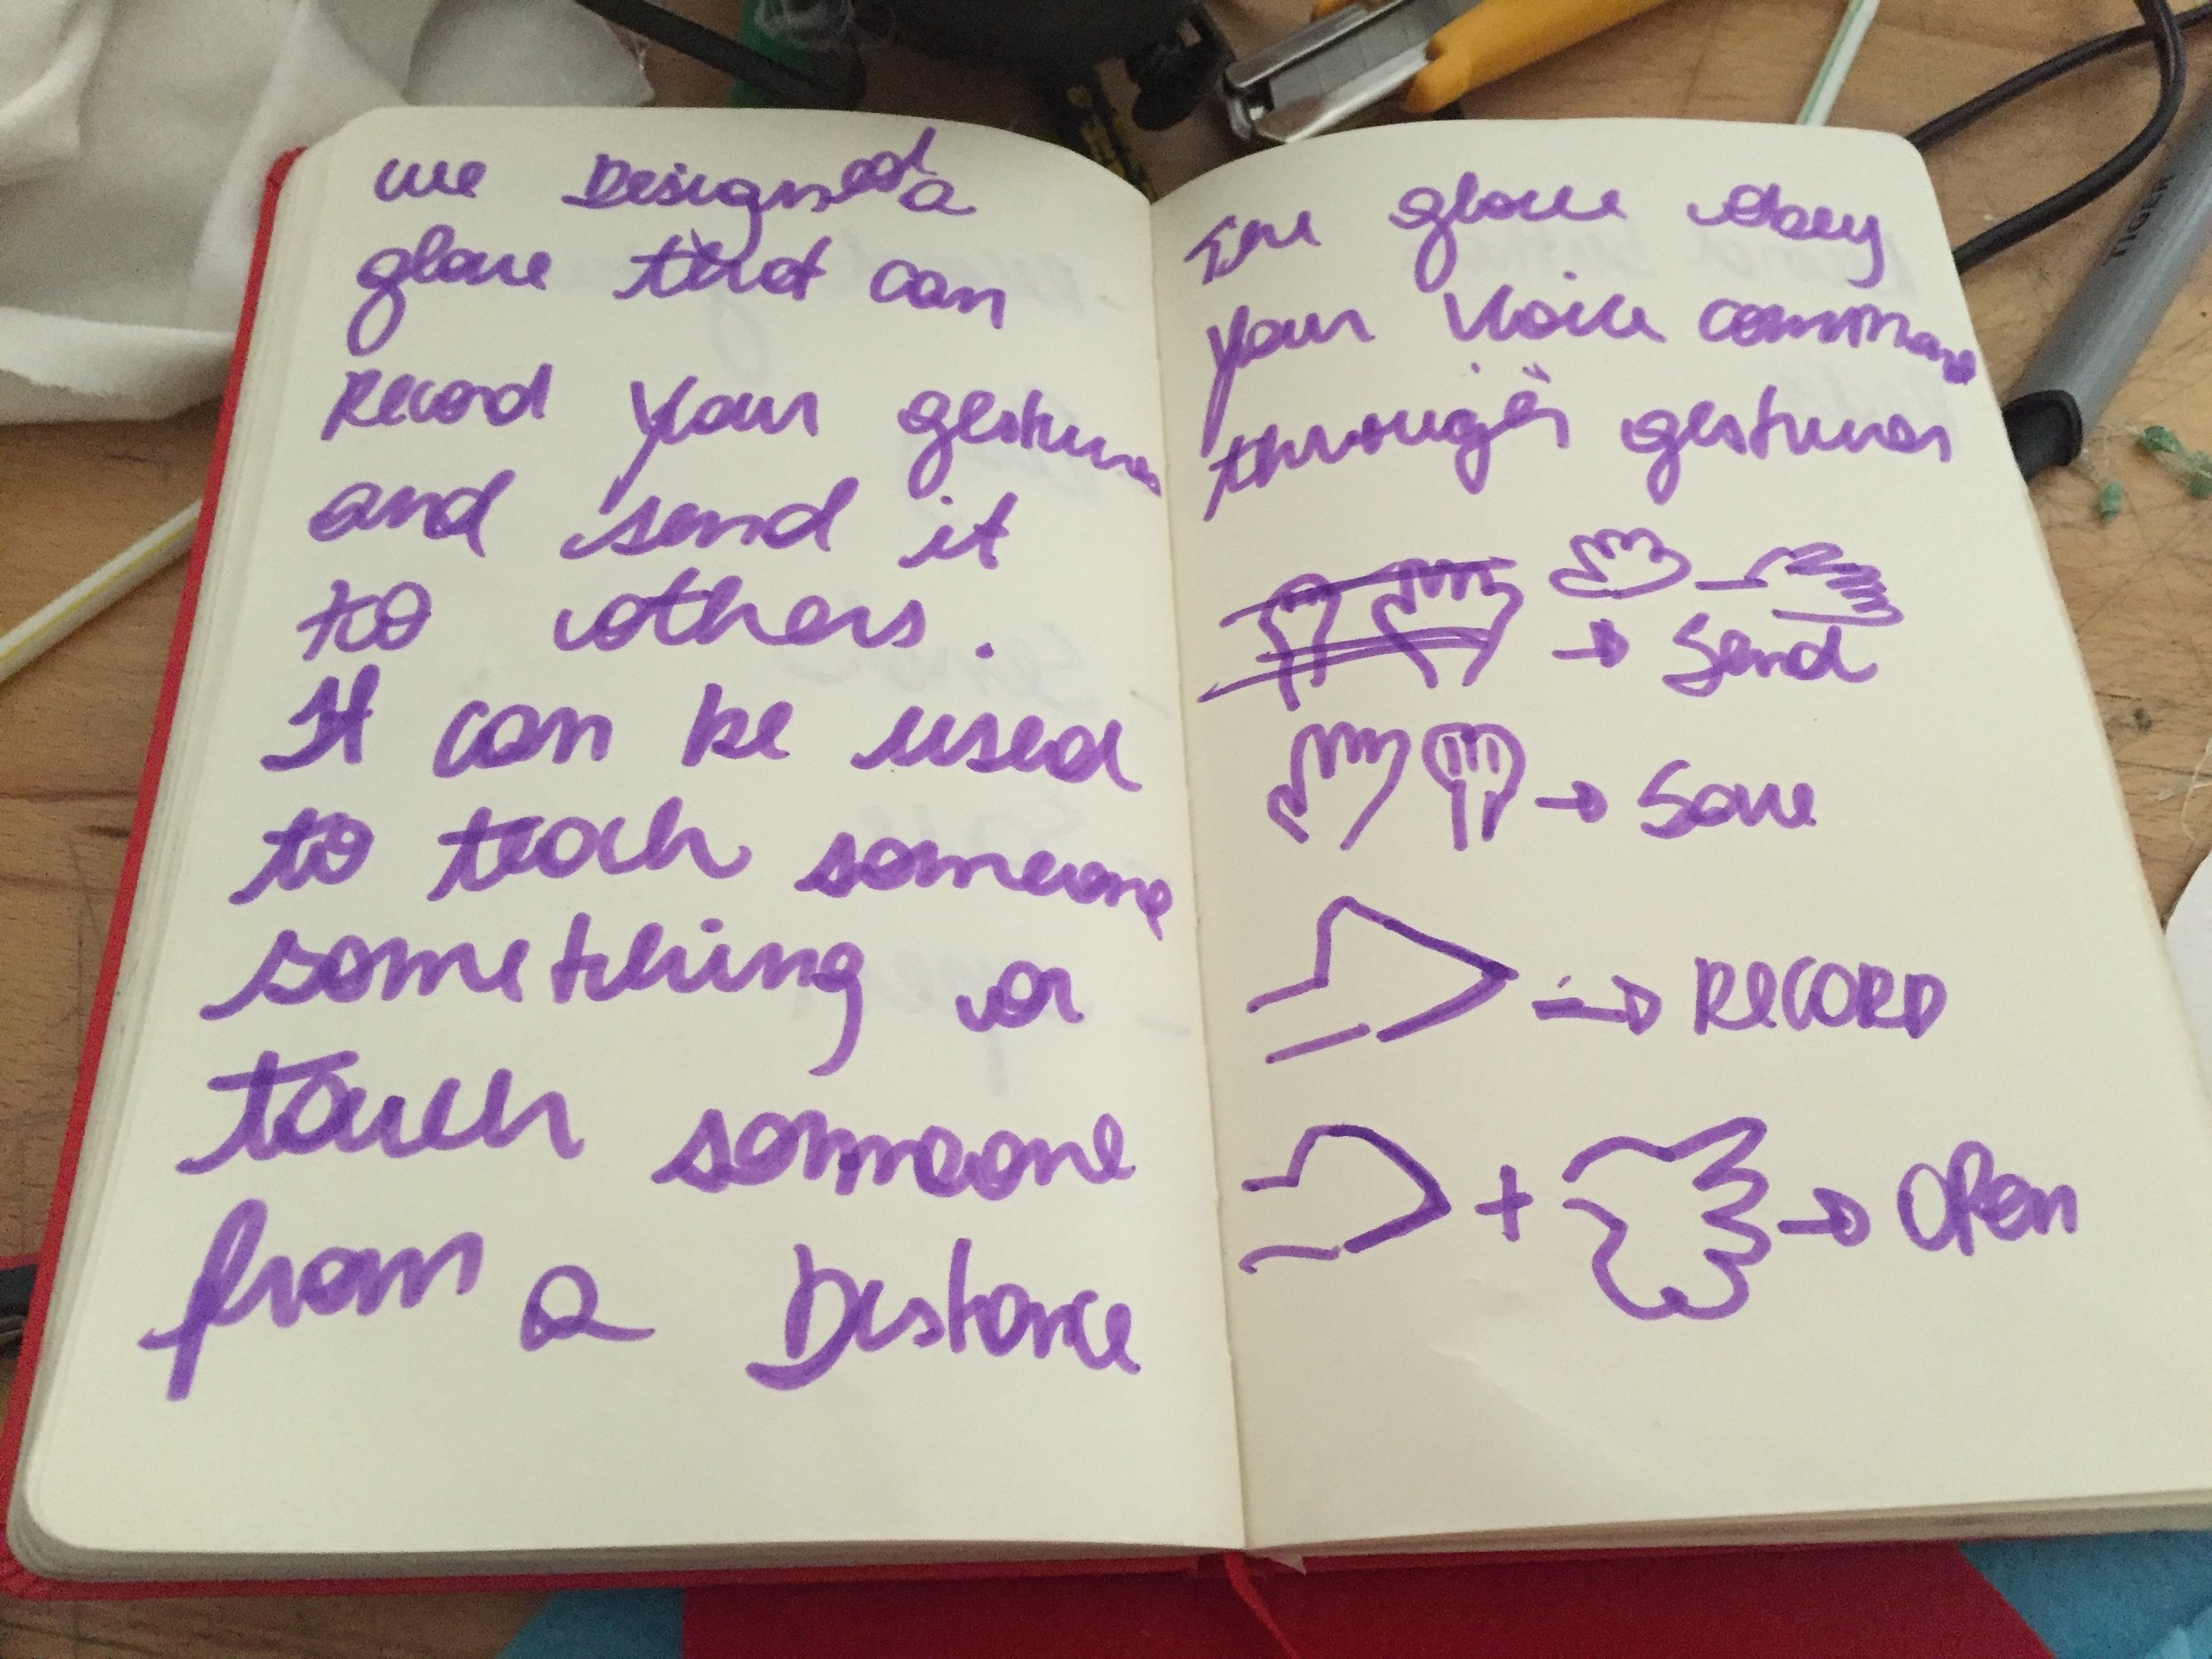 we Designed a
glove that can
Record your gestures
and send it
to others.
It can be used
to teach someone
something or
touch someone
from a Distance
The glove obey
your voice command
through gestures
→ Send
→ Save
→ RECORD
+ → OPen
TIGER